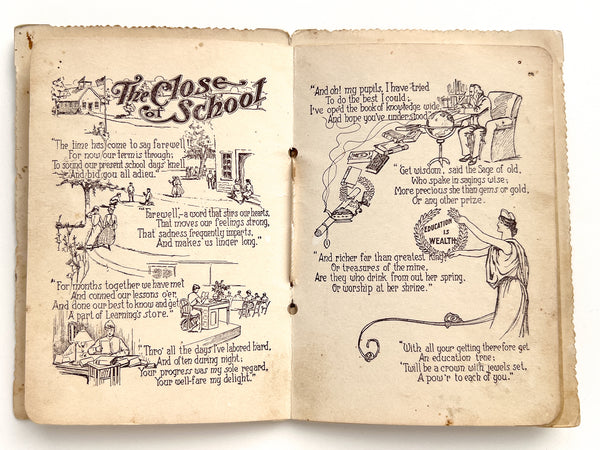 The Close
of School
"The time has come to say farewell,
For now our term is through;
To sound our present school days' knell
And bid you all adieu."
"Farewell",- a word that stirs our hearts,
That moves our feelings strong,
That sadness frequently imparts,
And makes us linger long."
"For months together we have met
And conned our lessons o'er,
And done our best to know and get
A part of Learning's store."
"Thro' all the days I've labored hard,
And often during night;
Your progress was my sole regard,
Your well-fare my delight."
"And oh! my pupils, I have tried
To do the best I could;
I've oped the book of knowledge wide,
And hope you've understood."
"Get wisdom", said the Sage of old,
Who spake in sayings wise;
More precious she than gems or gold,
Or any other prize.
EDUCATION
IS
WEALTH
"And richer far than greatest king,
Or treasures of the mine,
Are they who drink from out her spring,
Or worship at her shrine."
"With all your getting therefore get
An education true;
'Twill be a crown with jewels set,
A pow'r to each of you."